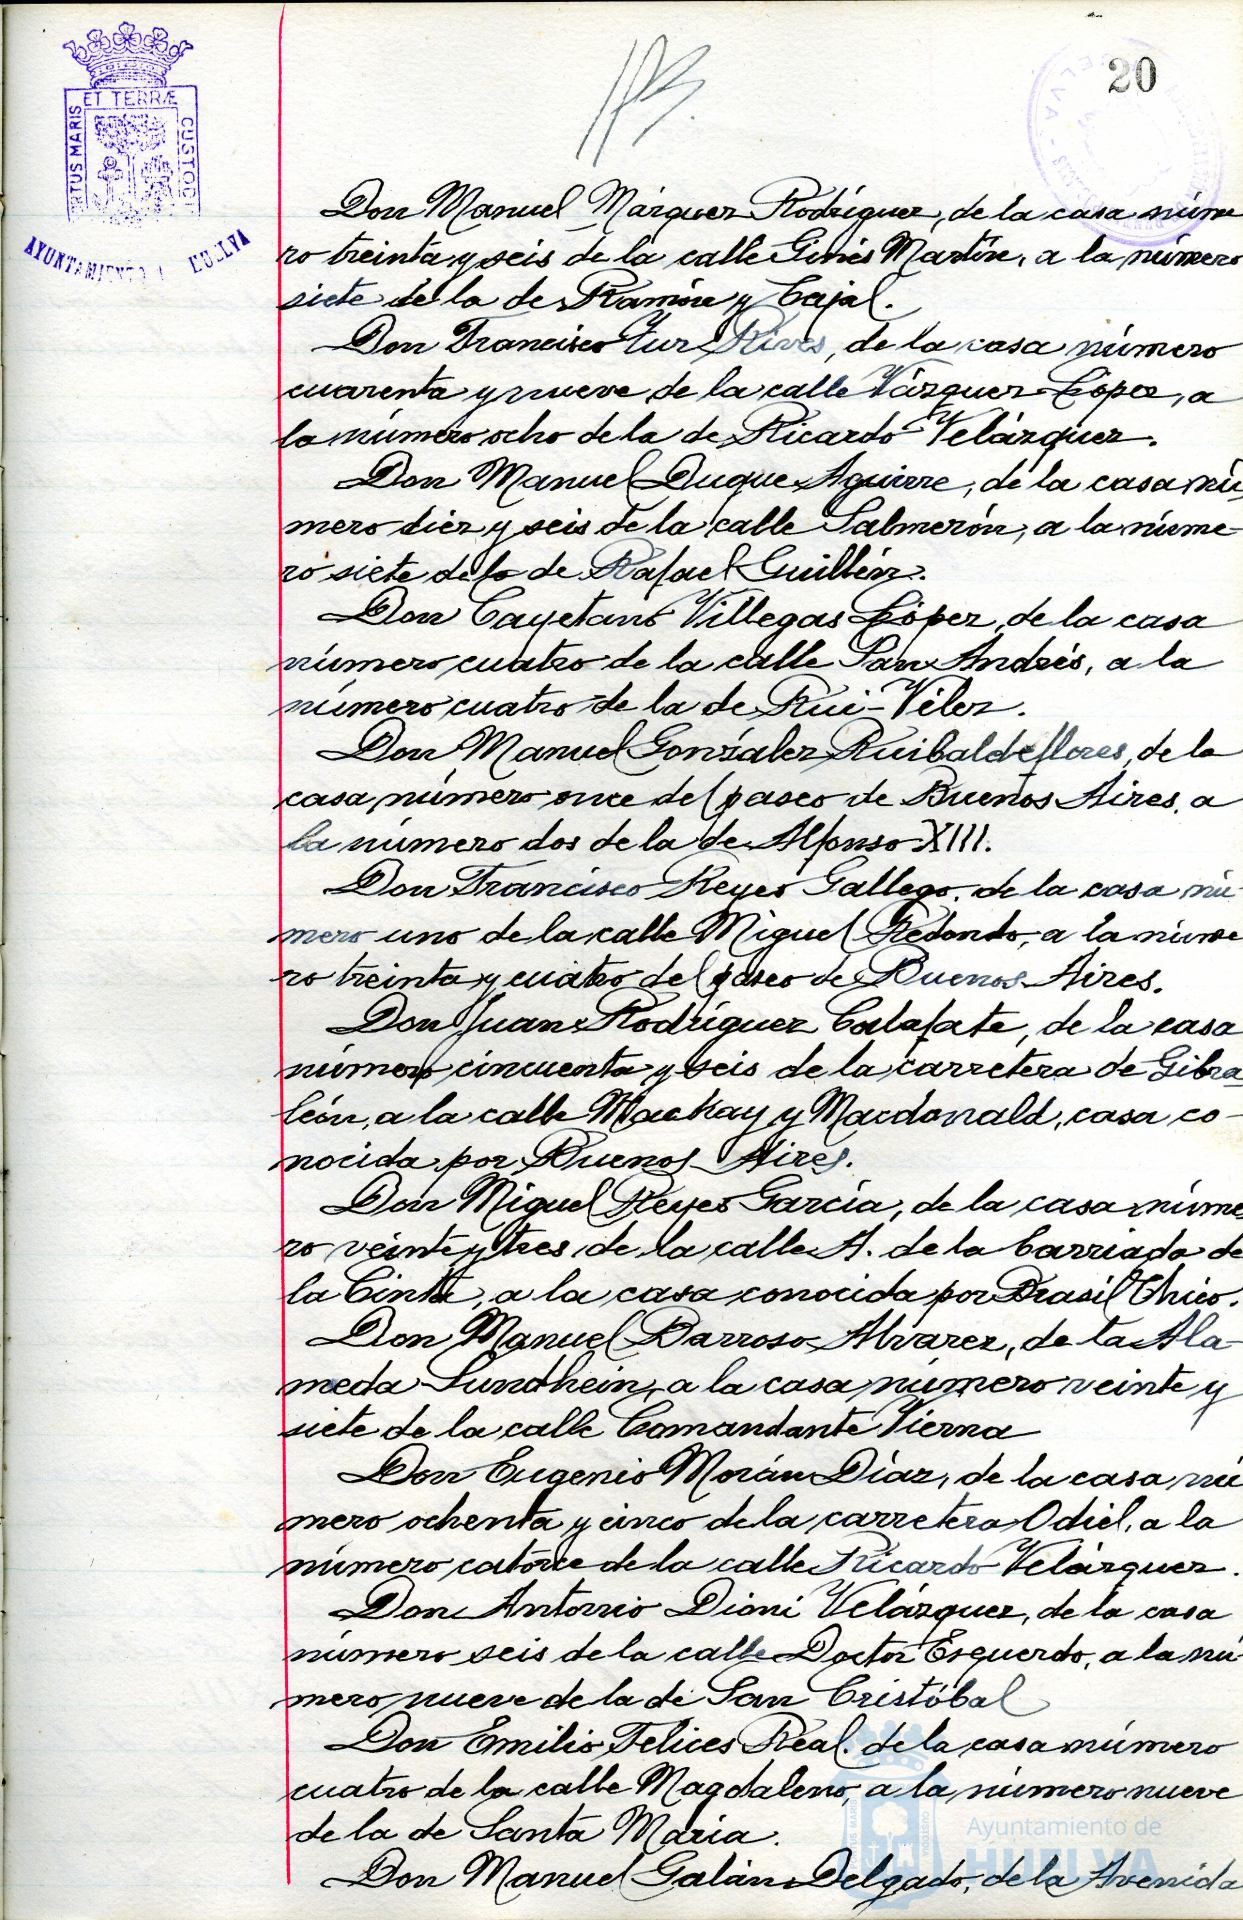 20
ET TERRÆ
RTUS MARIS
CUSTODI
AYUNTAMIENTO HUELVA
Don Manuel Márquez Rodríguez, de la casa núme
ro treinta y seis de la calle Ginés Martín, a la número
siete de la de Ramón y Cajal.
Don Francisco Rives, de la casa número
cuarenta y nueve de la calle Vázquez López, a
la número ocho de la de Ricardo Velázquez.
Don Manuel Duque Aguirre, de la casa nú
mero diez y seis de la calle Salmerón, a la núme-
ro siete de la de Rafael Guillén.
Don Cayetano Villegas López, de la casa
número cuatro de la calle San Andrés, a la
número cuatro de la de Rui-Vélez.
Don Manuel González Ruibaldeflores, de la
casa número once del paseo de Buenos Aires, a
la número dos de la de Alfonso XIII.
Don Francisco Reyes Gallego, de la casa nú-
mero uno de la calle Miguel Redondo, a la núme
ro treinta y cuatro del paseo de Buenos Aires.
Don Juan Rodríguez Calafate, de la casa
número cincuenta y seis de la carretera de Gibra
león, a la calle Mackay y Macdonald, casa co-
nocida por Buenos Aires.
Don Miguel Reyes García, de la casa núme
ro veinte y tres de la calle A. de la barriada de
la Cinta, a la casa conocida por Brasil Chico.
Don Manuel Barroso Alvarez, de la Ala-
meda Sundhein, a la casa número veinte y
siete de la calle Comandante Vierna
Don Eugenio Morán Díaz, de la casa nú
mero ochenta y cinco de la carretera Odiel, a la
número catorce de la calle Ricardo Velázquez.
Don Antonio Dioni Velázquez, de la casa
número seis de la calle Doctor Esquerdo, a la nú-
mero nueve de la de San Cristóbal
Don Emilio Felices Real, de la casa número
cuatro de la calle Magdalena, a la número nueve
de la de Santa María.
Don Manuel Galán Delgado, de la Avenida
Ayuntamiento de
HUELVA